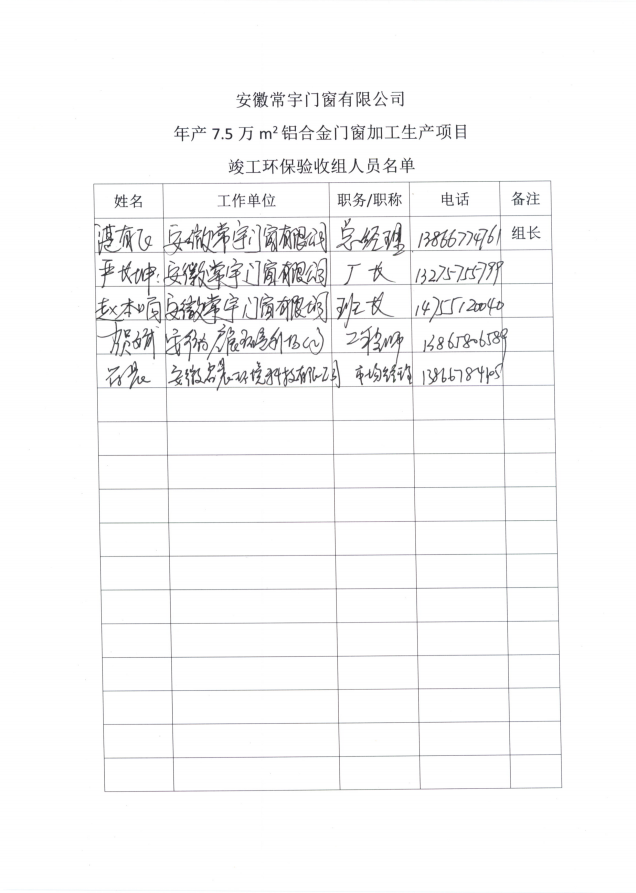 安徽常宇门窗有限公司
年产 7.5 万 m² 铝合金门窗加工生产项目
竣工环保验收组人员名单
姓名 工作单位 职务/职称 电话 备注
湛有飞 安徽常宇门窗有限公司 总经理 13866774761 组长
严长坤 安徽常宇门窗有限公司 厂长 13275755799
赵本响 安徽常宇门窗有限公司 班长 14755120040
工程师 13865806589
安徽 环境科技有限公司 市场经理 13866784105